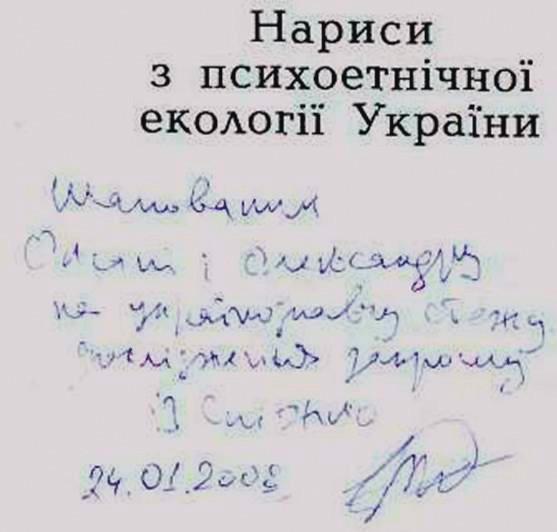 Нариси
з психоетнічної
екології України
Шановним
Олені і Олександру
на українознавчу стежу
дослідження
із
24.01.2008